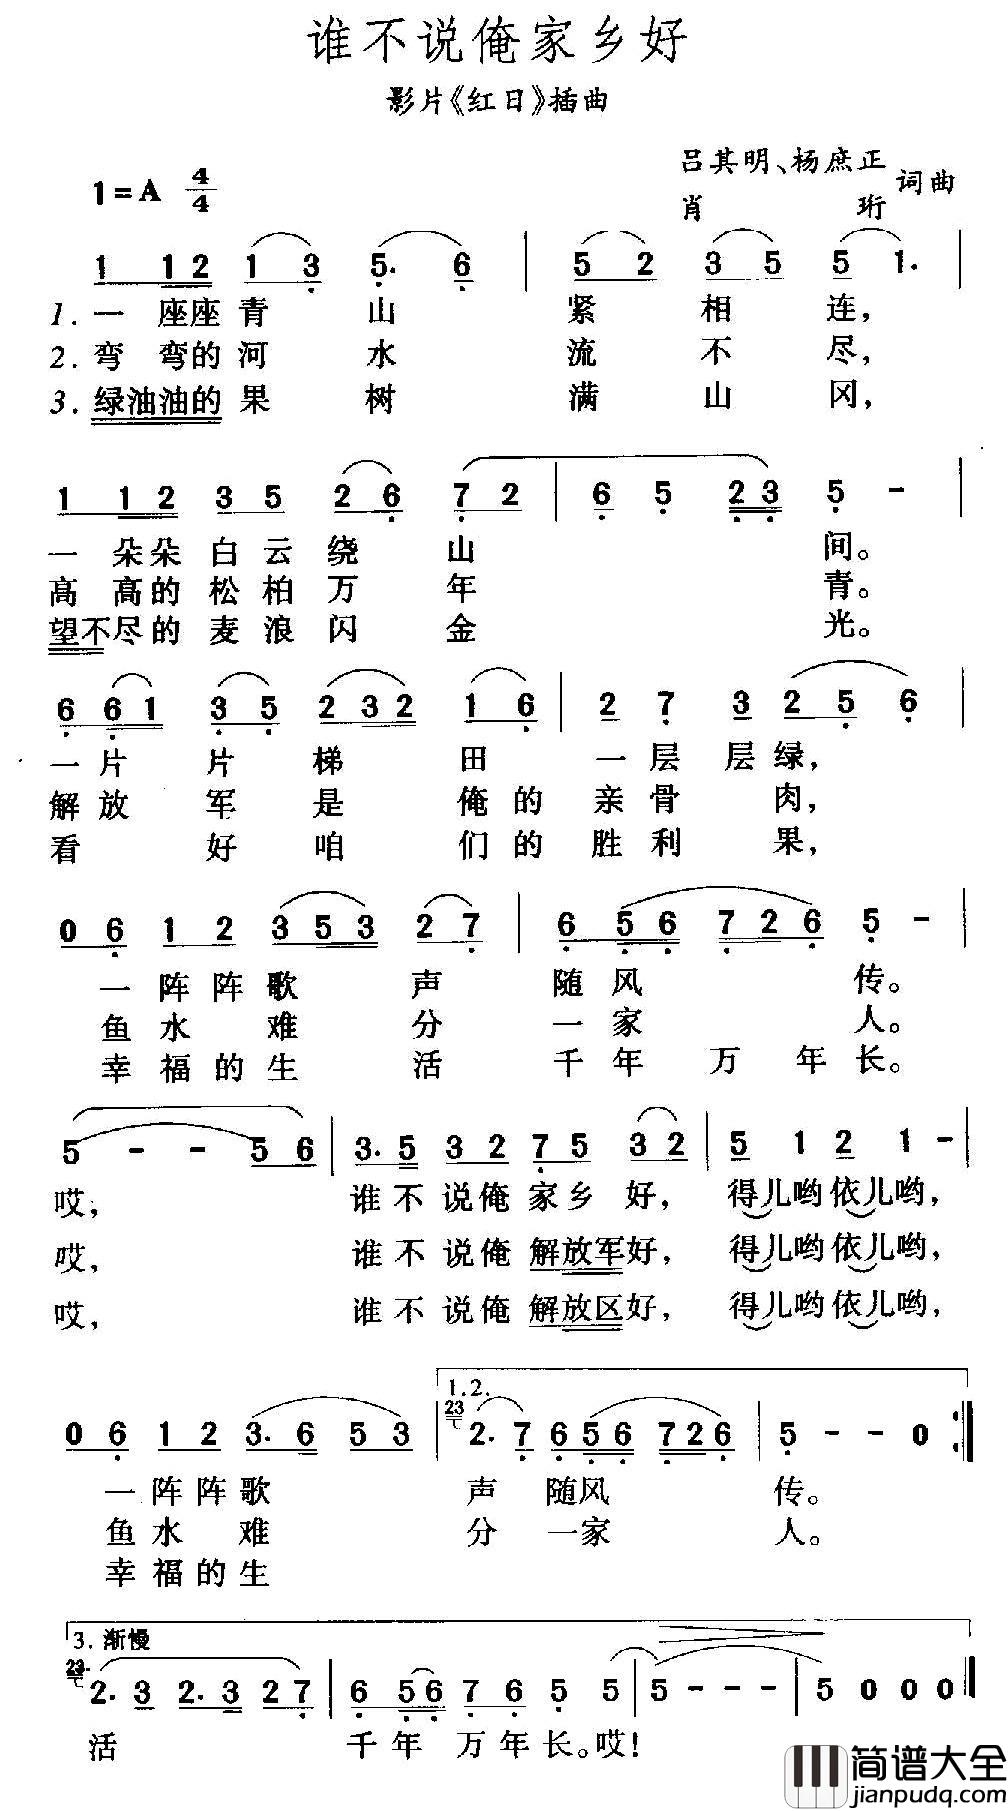 谁不说俺家乡好
影片《红日》插曲
吕其明、杨庶正
肖珩 词曲
1=A 4/4
1 12 1 3 5. 6 | 5 2 3 5 5 1. |
1.一座座青山紧相连,
2.弯弯的河水流不尽,
3.绿油油的果树满山冈,
1 12 3 5 2 6 7 2 | 6 5 23 5 - |
一朵朵白云绕山间。
高高的松柏万年青。
望不尽的麦浪闪金光。
6 61 3 5 2 32 1 6 | 2 7 3 2 5 6 |
一片片梯田一层层绿,
解放军是俺的亲骨肉,
看好咱们的胜利果,
0 6 1 2 3 53 2 7 | 6 56 7 2 6 5 - |
一阵阵歌声随风传。
鱼水难分一家人。
幸福的生活千年万年长。
5 - - 5 6 | 3. 5 3 2 7 5 3 2 | 5 1 2 1 - |
哎,谁不说俺家乡好,得儿哟依儿哟,
哎,谁不说俺解放军好,得儿哟依儿哟,
哎,谁不说俺解放区好,得儿哟依儿哟,
1.2.
0 6 1 2 3. 6 5 3 | 23 2. 7 6 56 72 6 | 5 - - 0 :|
一阵阵歌声随风传。
鱼水难分一家人。
幸福的生
3. 渐慢
23 2. 3 2. 3 2 7 | 6 56 7 6 5 5 | 5 - - - | 5 0 0 0 |
活千年万年长。哎!
简谱大全
jianpudq.com